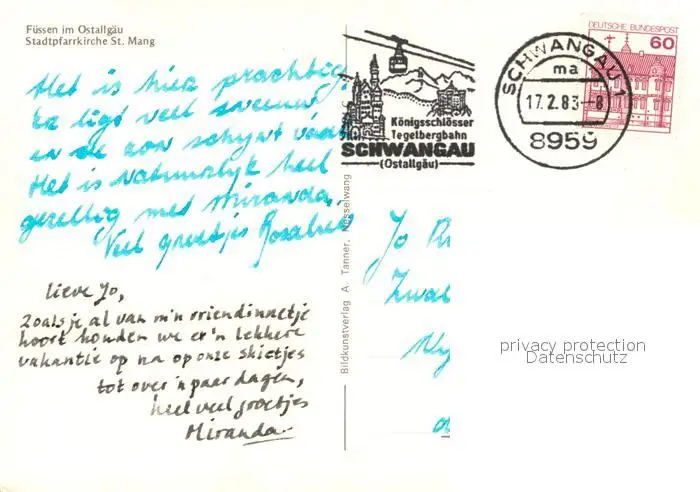 Füssen im Ostallgäu
Stadtpfarrkirche St. Mang
Het is hier prachtig.
Er ligt veel sneeuw
en de zon schijnt
Het is natuurlijk heel
gezellig met Miranda.
Veel groetjes
lieve Jo,
Zoals je al van m'n vriendinnetje
hoort houden we er 'n lekkere
vakantie op na op onze skietjes
tot over 'n paar dagen,
heel veel groetjes
Miranda
Bildkunstverlag A. Tanner, Nesselwang
Königsschlösser
Tegelbergbahn
SCHWANGAU
(Ostallgäu)
SCHWANGAU 1
ma
17.2.83-8
8959
DEUTSCHE BUNDESPOST
60
Jo
privacy protection
Datenschutz